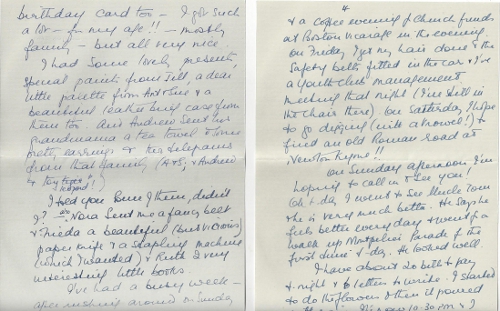 birthday card too – I got such
a lot – for my age!! – mostly
funny – but all very nice.
I had some lovely presents,
special paints from Jill, a dear
little palette from
beautiful leather bag case from
them too. And Andrew sent his
grandmama a tea towel & some
pretty earrings & this telegrams
from that family (A & J, & Andrew
I told you
I? – Nora sent me a fancy belt
& Frieda a beautiful
paper knife & a stapling machine
(which I wanted) & Ruth 2 very
interesting little books.
I've had a busy week –
after rushing around on Sunday
& a coffee evening of Church funds
at Boston in the evening.
on Friday I got my hair done & the
Safety belts fitted in the car & I've
a Youth Club management
meeting that night (I'm still in
the chair there) on Saturday I hope
to go digging (with a trowel!) to
find an old Roman road at
on Sunday afternoon I'm
hoping to call in & see you!
to-day I went to see Uncle Tom
& he is very much better. He says he
feels better every day & went for a
walk up Montpelier Parade for the
first time to-day. He looked well.
I have about 20 bills to pay
to-night & 6 letters to write. I started
to do the flowers & then it poured
10.30 pm & I